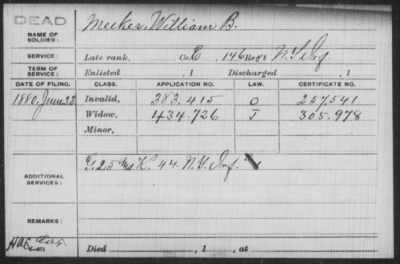 DEAD
NAME OF SOLDIER: Meeker, William B.
SERVICE: Late rank, Co. E, 146 Reg't N.Y. Inf
TERM OF SERVICE: Enlisted , 1 Discharged , 1
DATE OF FILING. CLASS. APPLICATION NO. LAW. CERTIFICATE NO.
1880, June 22. Invalid, 383.415 O 257.541
Widow, 434.726 J 305.978
Minor,
ADDITIONAL SERVICES: 25 K. 44. N.Y. Inf.
REMARKS:
Died , 1 , at